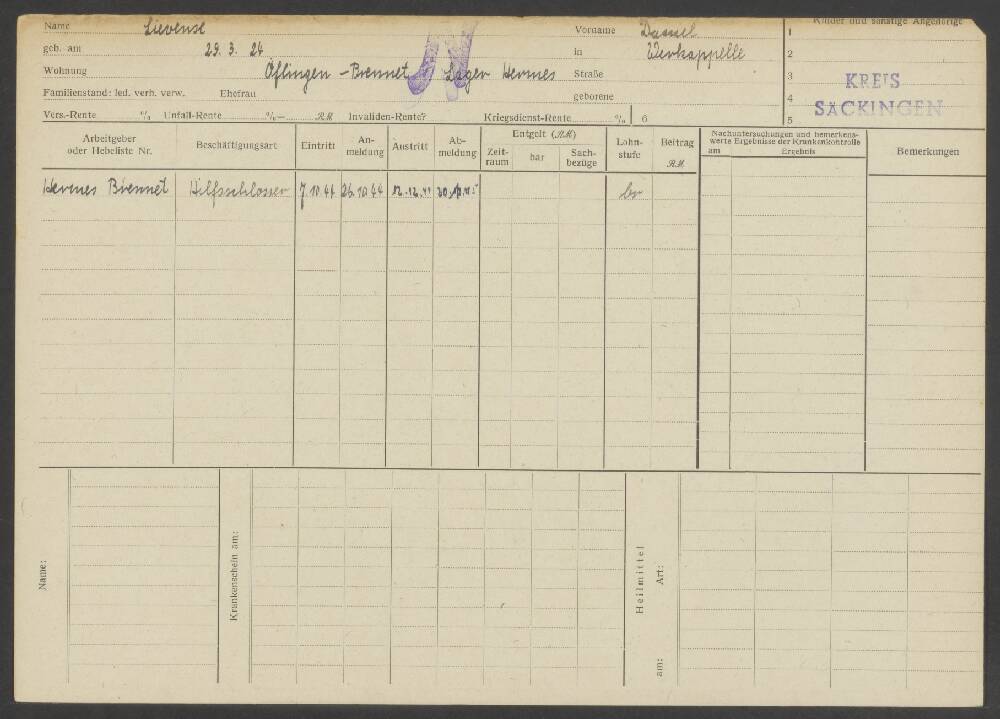 Name Lievense Vorname Dassel Kinder und sonstige Angehörige
1
geb. am 29. 3. 24 in 2
Wohnung Öflingen - Brennet Lager Hermes Straße 3 KREIS
Familienstand: led. verh. verw. Ehefrau geborene 4 SÄCKINGEN
Vers.-Rente % Unfall-Rente %— R.M. Invaliden-Rente? Kriegsdienst-Rente % 6 5
Arbeitgeber oder Hebeliste Nr.
Beschäftigungsart
Eintritt
An-meldung
Austritt
Ab-meldung
Entgelt (R.M.)
Zeit-raum
bar
Sach-bezüge
Lohn-stufe
Beitrag R.M.
Nachuntersuchungen und bemerkens-
werte Ergebnisse der Krankenkontrolle
am Ergebnis
Bemerkungen
Hermes Brennet Hilfsschlosser 7.10.44 26.10.44 12.12.44
Name:
Krankenschein am:
Heilmittel
Art:
am: